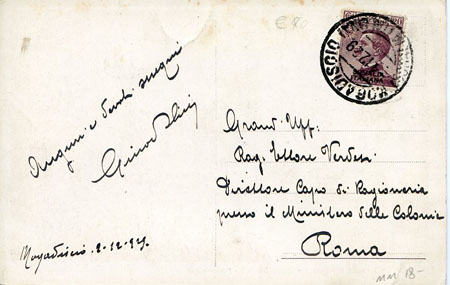 € 80
MOGADISCIO
Auguri e devoti ossequi
Mogadiscio. 2-12-929.
Grand. Uff:
Rag. Ettore Verdesi
Direttore Capo di Ragioneria
presso il Ministero delle Colonie
Roma
18-